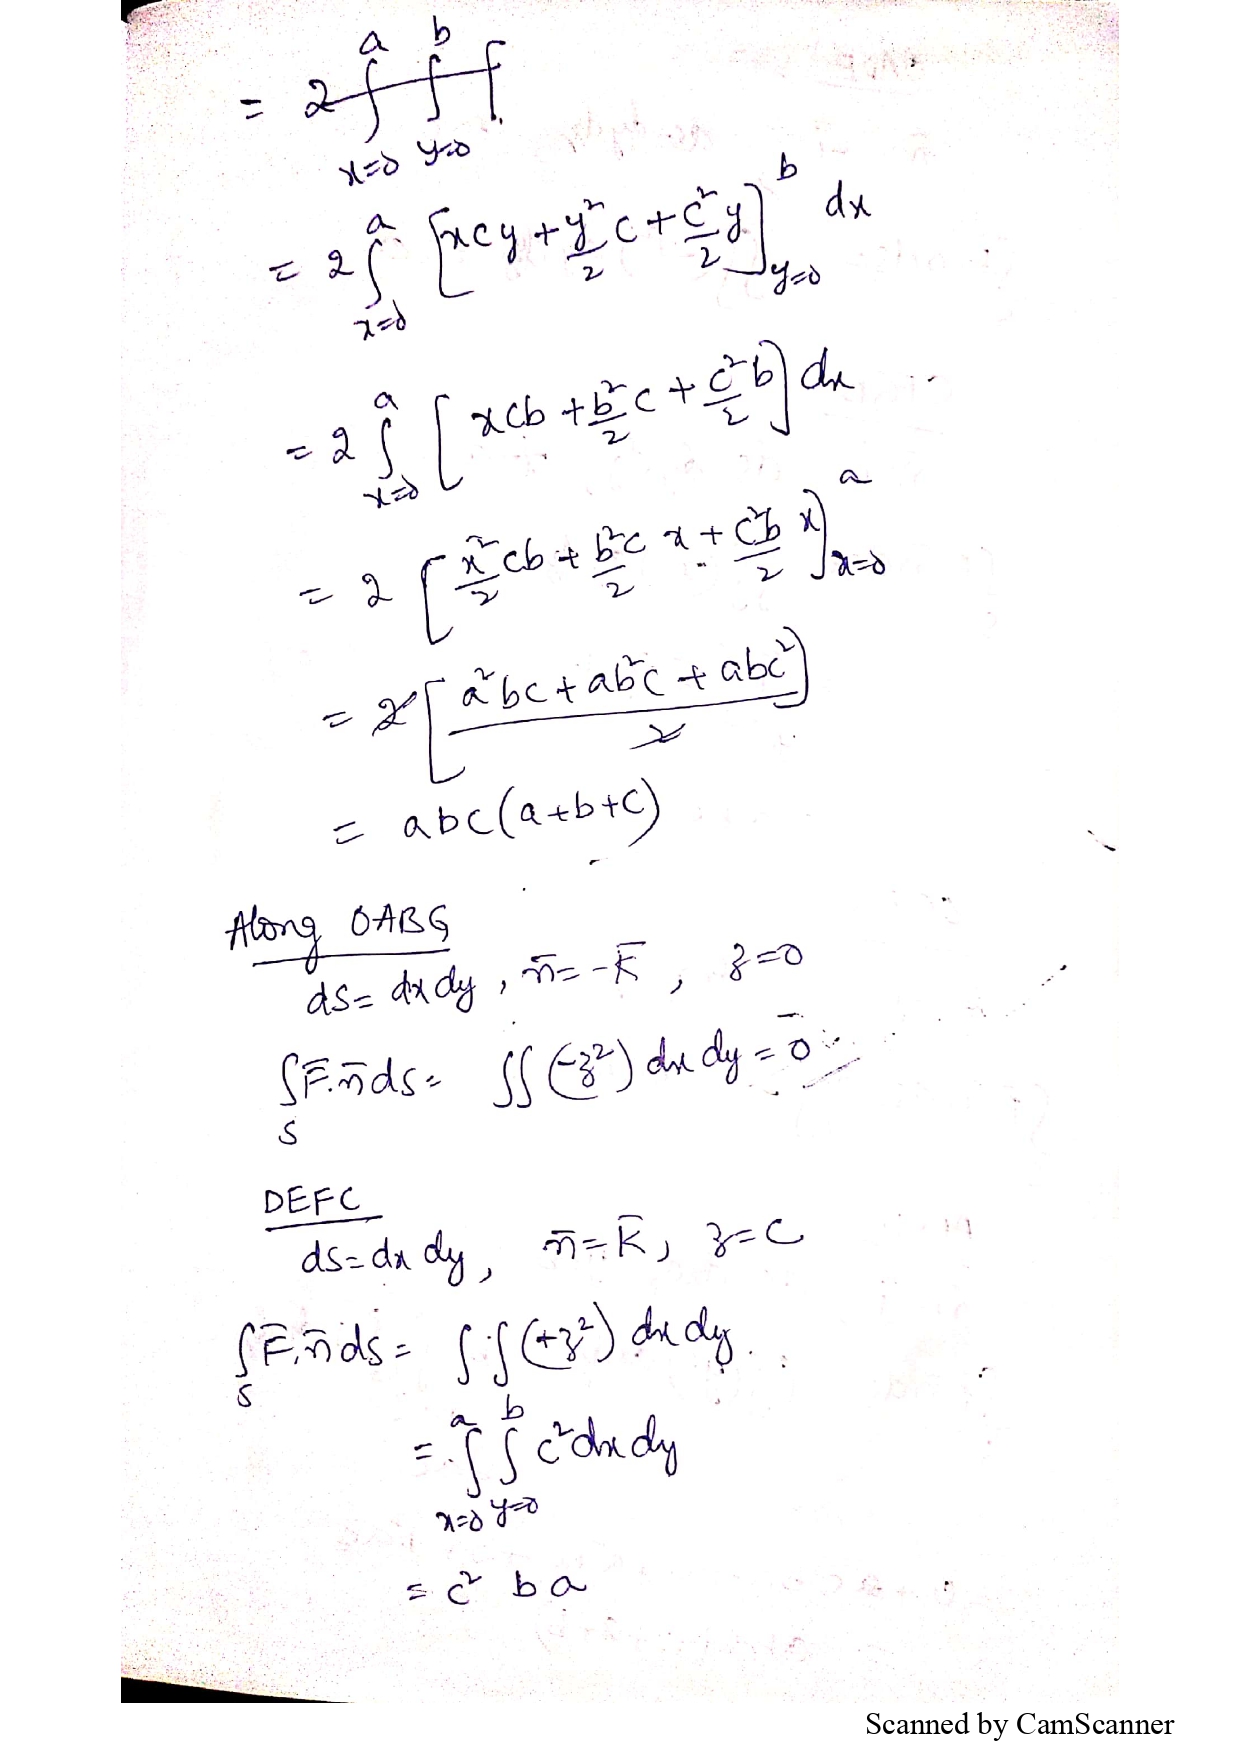 = 2 ∫ₓ₌₀ᵃ ∫ᵧ₌₀ᵇ ∫
= 2 ∫ₓ₌₀ᵃ [xcy + y²/2 c + c²/2 y]ᵧ₌₀ᵇ dx
= 2 ∫ₓ₌₀ᵃ [xcb + b²/2 c + c²/2 b] dx
= 2 [x²/2 cb + b²c/2 x + c²b/2 x]ₓ₌₀ᵃ
= 2 [(a²bc + ab²c + abc²)/2]
= abc(a+b+c)
Along OABG
ds = dx dy, n̄ = -k̄, z=0
∫ₛ F̄.n̄ ds = ∬ (-z²) dx dy = 0
DEFC
ds = dx dy, n̄ = k̄, z = c
∫ₛ F̄.n̄ ds = ∫∫ (+z²) dx dy.
= ∫ₓ₌₀ᵃ ∫ᵧ₌₀ᵇ c² dx dy
= c² b a
Scanned by CamScanner